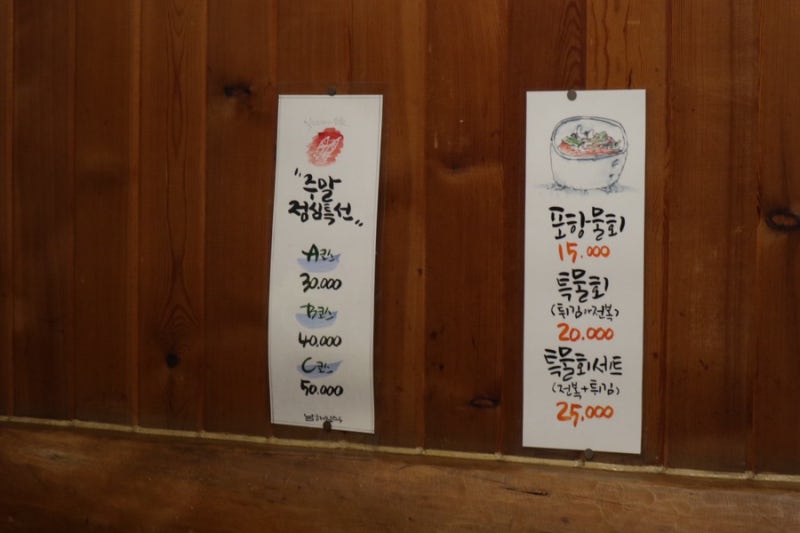 "주말
점심특선"
A코스
30.000
B코스
40.000
C코스
50.000
포항물회
15.000
특물회
(튀김or전복)
20.000
특물회세트
(전복+튀김)
25.000